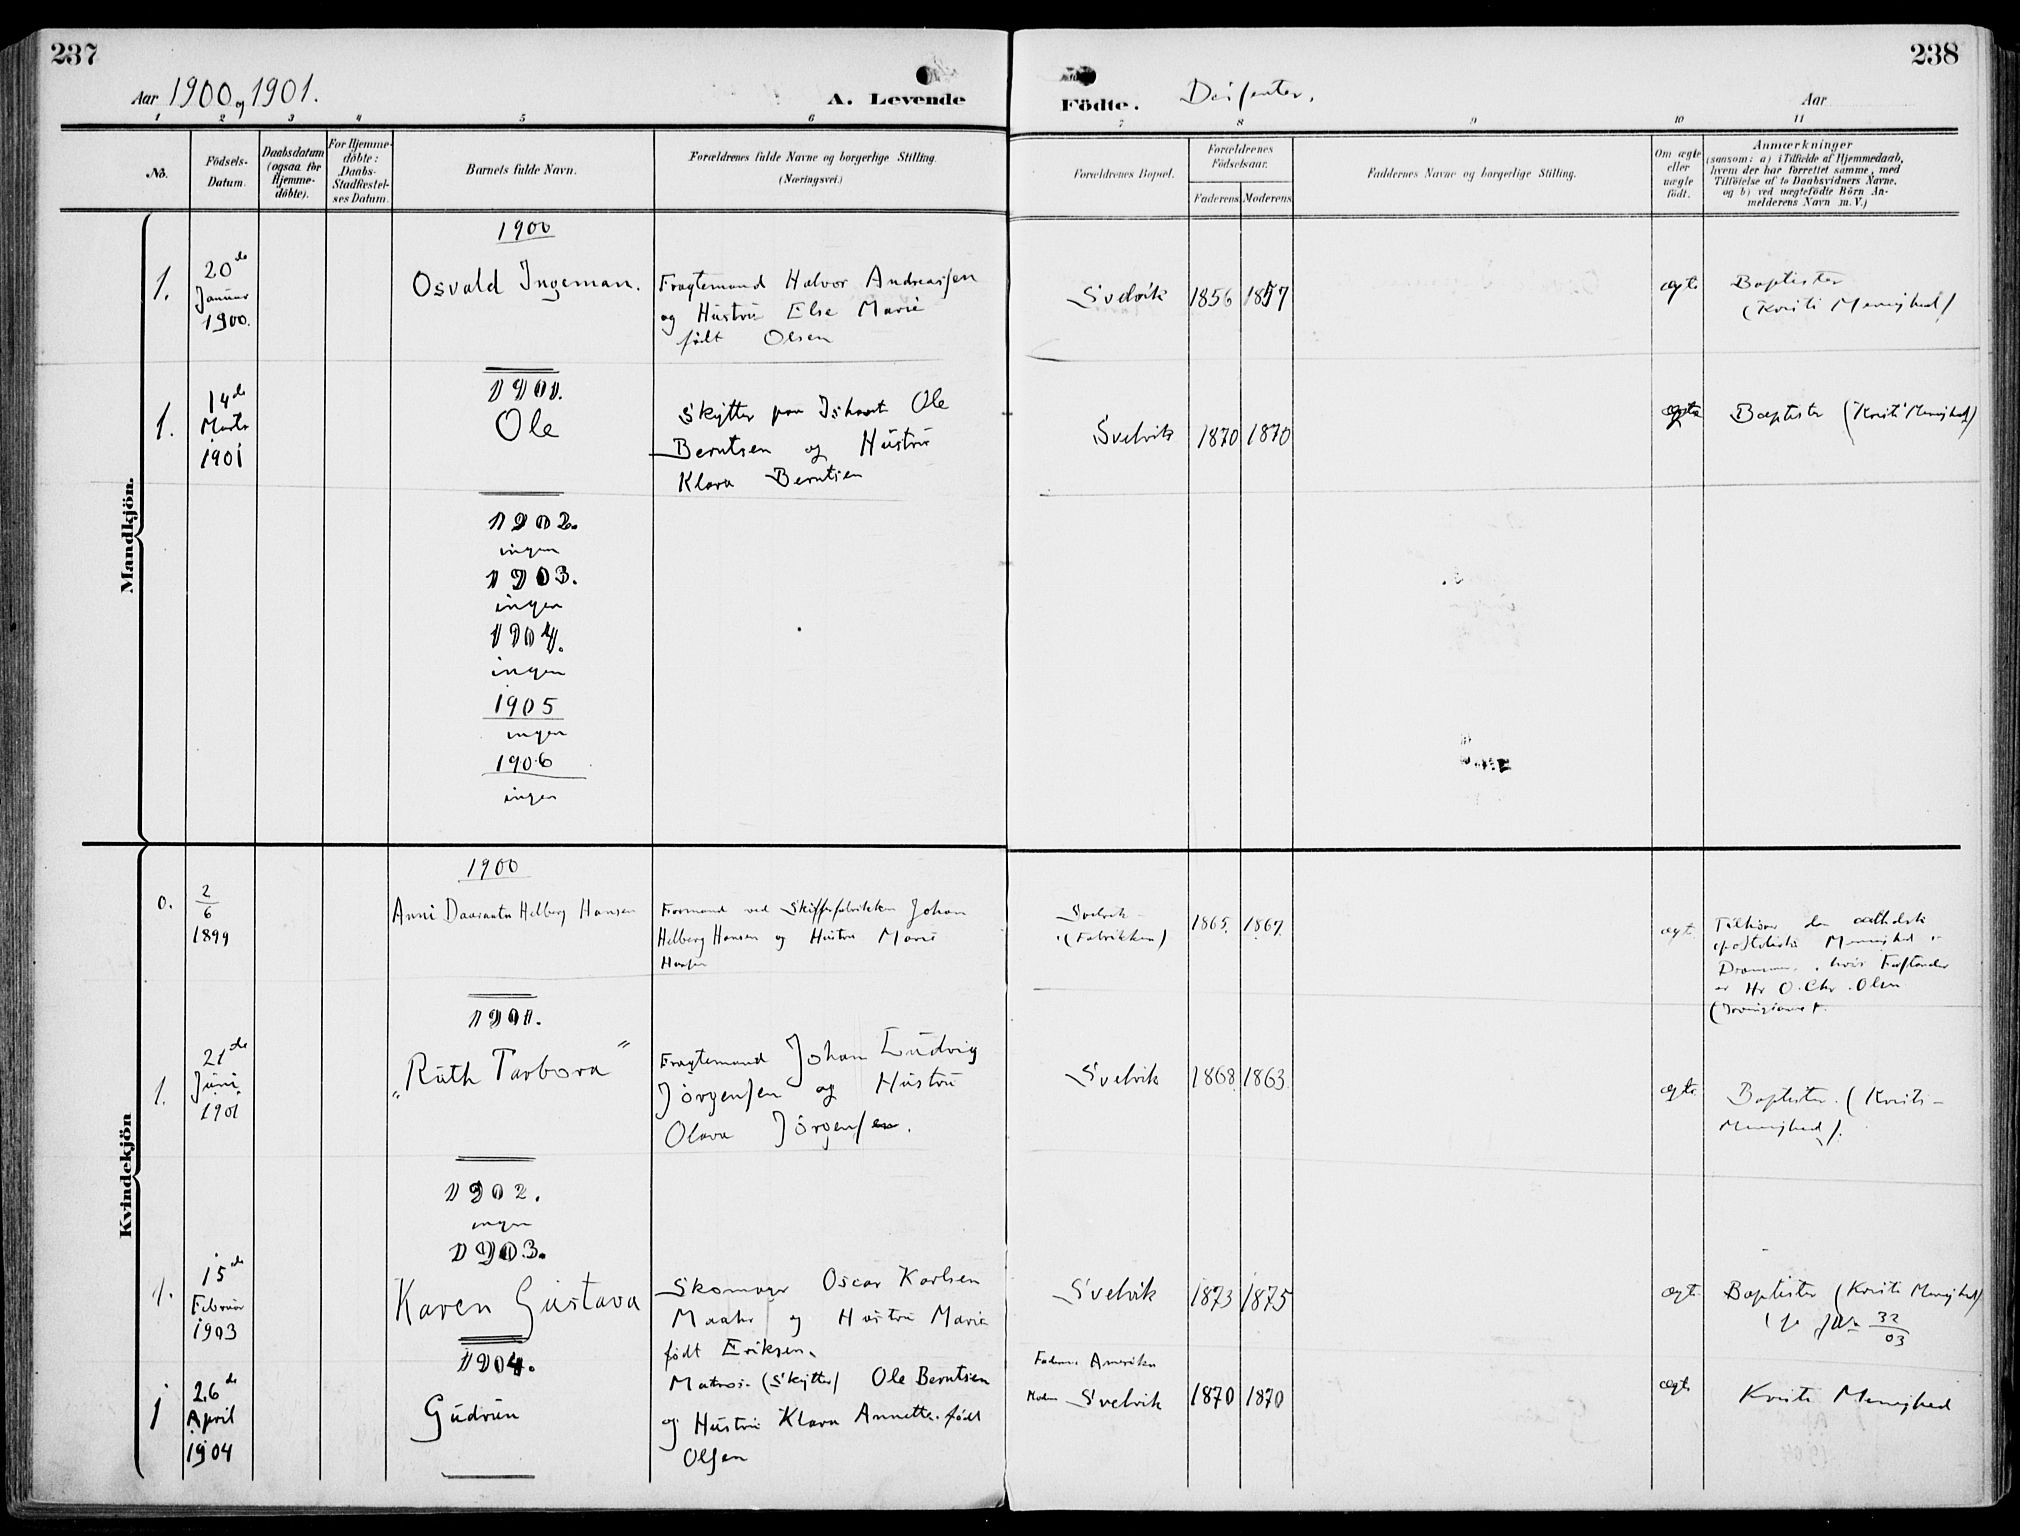 237
238
Aar 1900 og 1901.
A. Levende
Födte.
Aar
1 2 3 4 5 6 7 8 9 10 11
No.
Födsels-
Datum.
Daabsdatum
(ogsaa for
Hjemme-
döbte).
For Hjemme-
döbte:
Daabs-
Stadfæstel-
ses Datum.
Barnets fulde Navn.
Forældrenes fulde Navne og borgerlige Stilling.
(Næringsvei.)
Forældrenes Bopæl.
Forældrenes
Födselsaar.
Faderens
Moderens
Faddernes Navne og borgerlige Stilling.
Om ægte
eller
uægte
födt.
Anmærkninger
(saasom: a) i Tilfælde af Hjemmedaab,
hvem der har forrettet samme, med
Tilföielse af to Daabsvidners Navne,
og b) ved uægtefödte Börn An-
melderens Navn m. V.)
Mandkjön.
1900
1.
20de
Januar
1900.
Osvald Ingeman.
Fragtemand Halvor Andreassen
og Hustru Else Marie
født Olsen
Svelvik
1856
1857
ægte
Baptister
(Kristi Menighed)
1901.
1.
14de
Marts
1901
Ole
Skytter paa Ishavet Ole
Berntsen og Hustru
Klara Berntsen
Svelvik
1870
1870
ægte
Baptister (Kristi Menighed)
1902.
ingen
1903.
ingen
1904.
ingen
1905
ingen
1906
ingen
Kvindekjön
1900
0.
2
6
1899
Anni Helberg Hansen
Formand ved Johan
Helberg Hansen og Hustru Marie
Hansen
Svelvik
(Fabrikken)
1865.
1867.
ægte
Tilhører den catholsk
apostoliske Menighed i
Drammen, hvis Forstander
er Hr O. Chr. Olsen
1901.
1.
21de
Juni
1901
"Ruth Tarbora"
Fragtemand Johan Ludvig
Jörgensen og Hustru
Olava Jörgensen.
Svelvik
1868
1863
ægte
Baptister. (Kristi-
Menighed).
1902.
ingen
1903.
1.
15de
Februar
1903
Karen Gustava
Skomager Oscar Karlsen
og Hustru Marie
født Eriksen.
Svelvik
1873
1875
ægte
Baptister (Kristi Menighed)
32
03
1904.
1
26de
April
1904
Gudrun
Matros (Skytter) Ole Berntsen
og Hustru Klara Annette født
Olsen
Faderen Amerika
Moderen Svelvik
1870
1870
ægte
Kristi Menighed